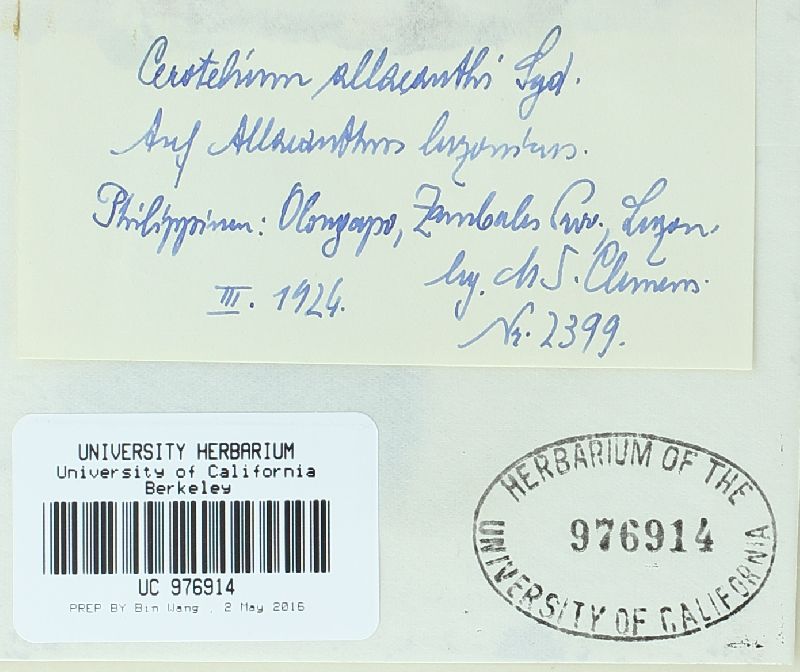 Cerotelium allaeanthi Syd.
Auf Allaeanthus luzonicus.
Philippinen: Olongapo, Zambales Prov., Luzon.
III. 1924.
leg. M S. Clemens.
Nr. 2399.
UNIVERSITY HERBARIUM
University of California
Berkeley
UC 976914
PREP BY Bin Wang , 2 May 2016
HERBARIUM OF THE
976914
UNIVERSITY OF CALIFORNIA